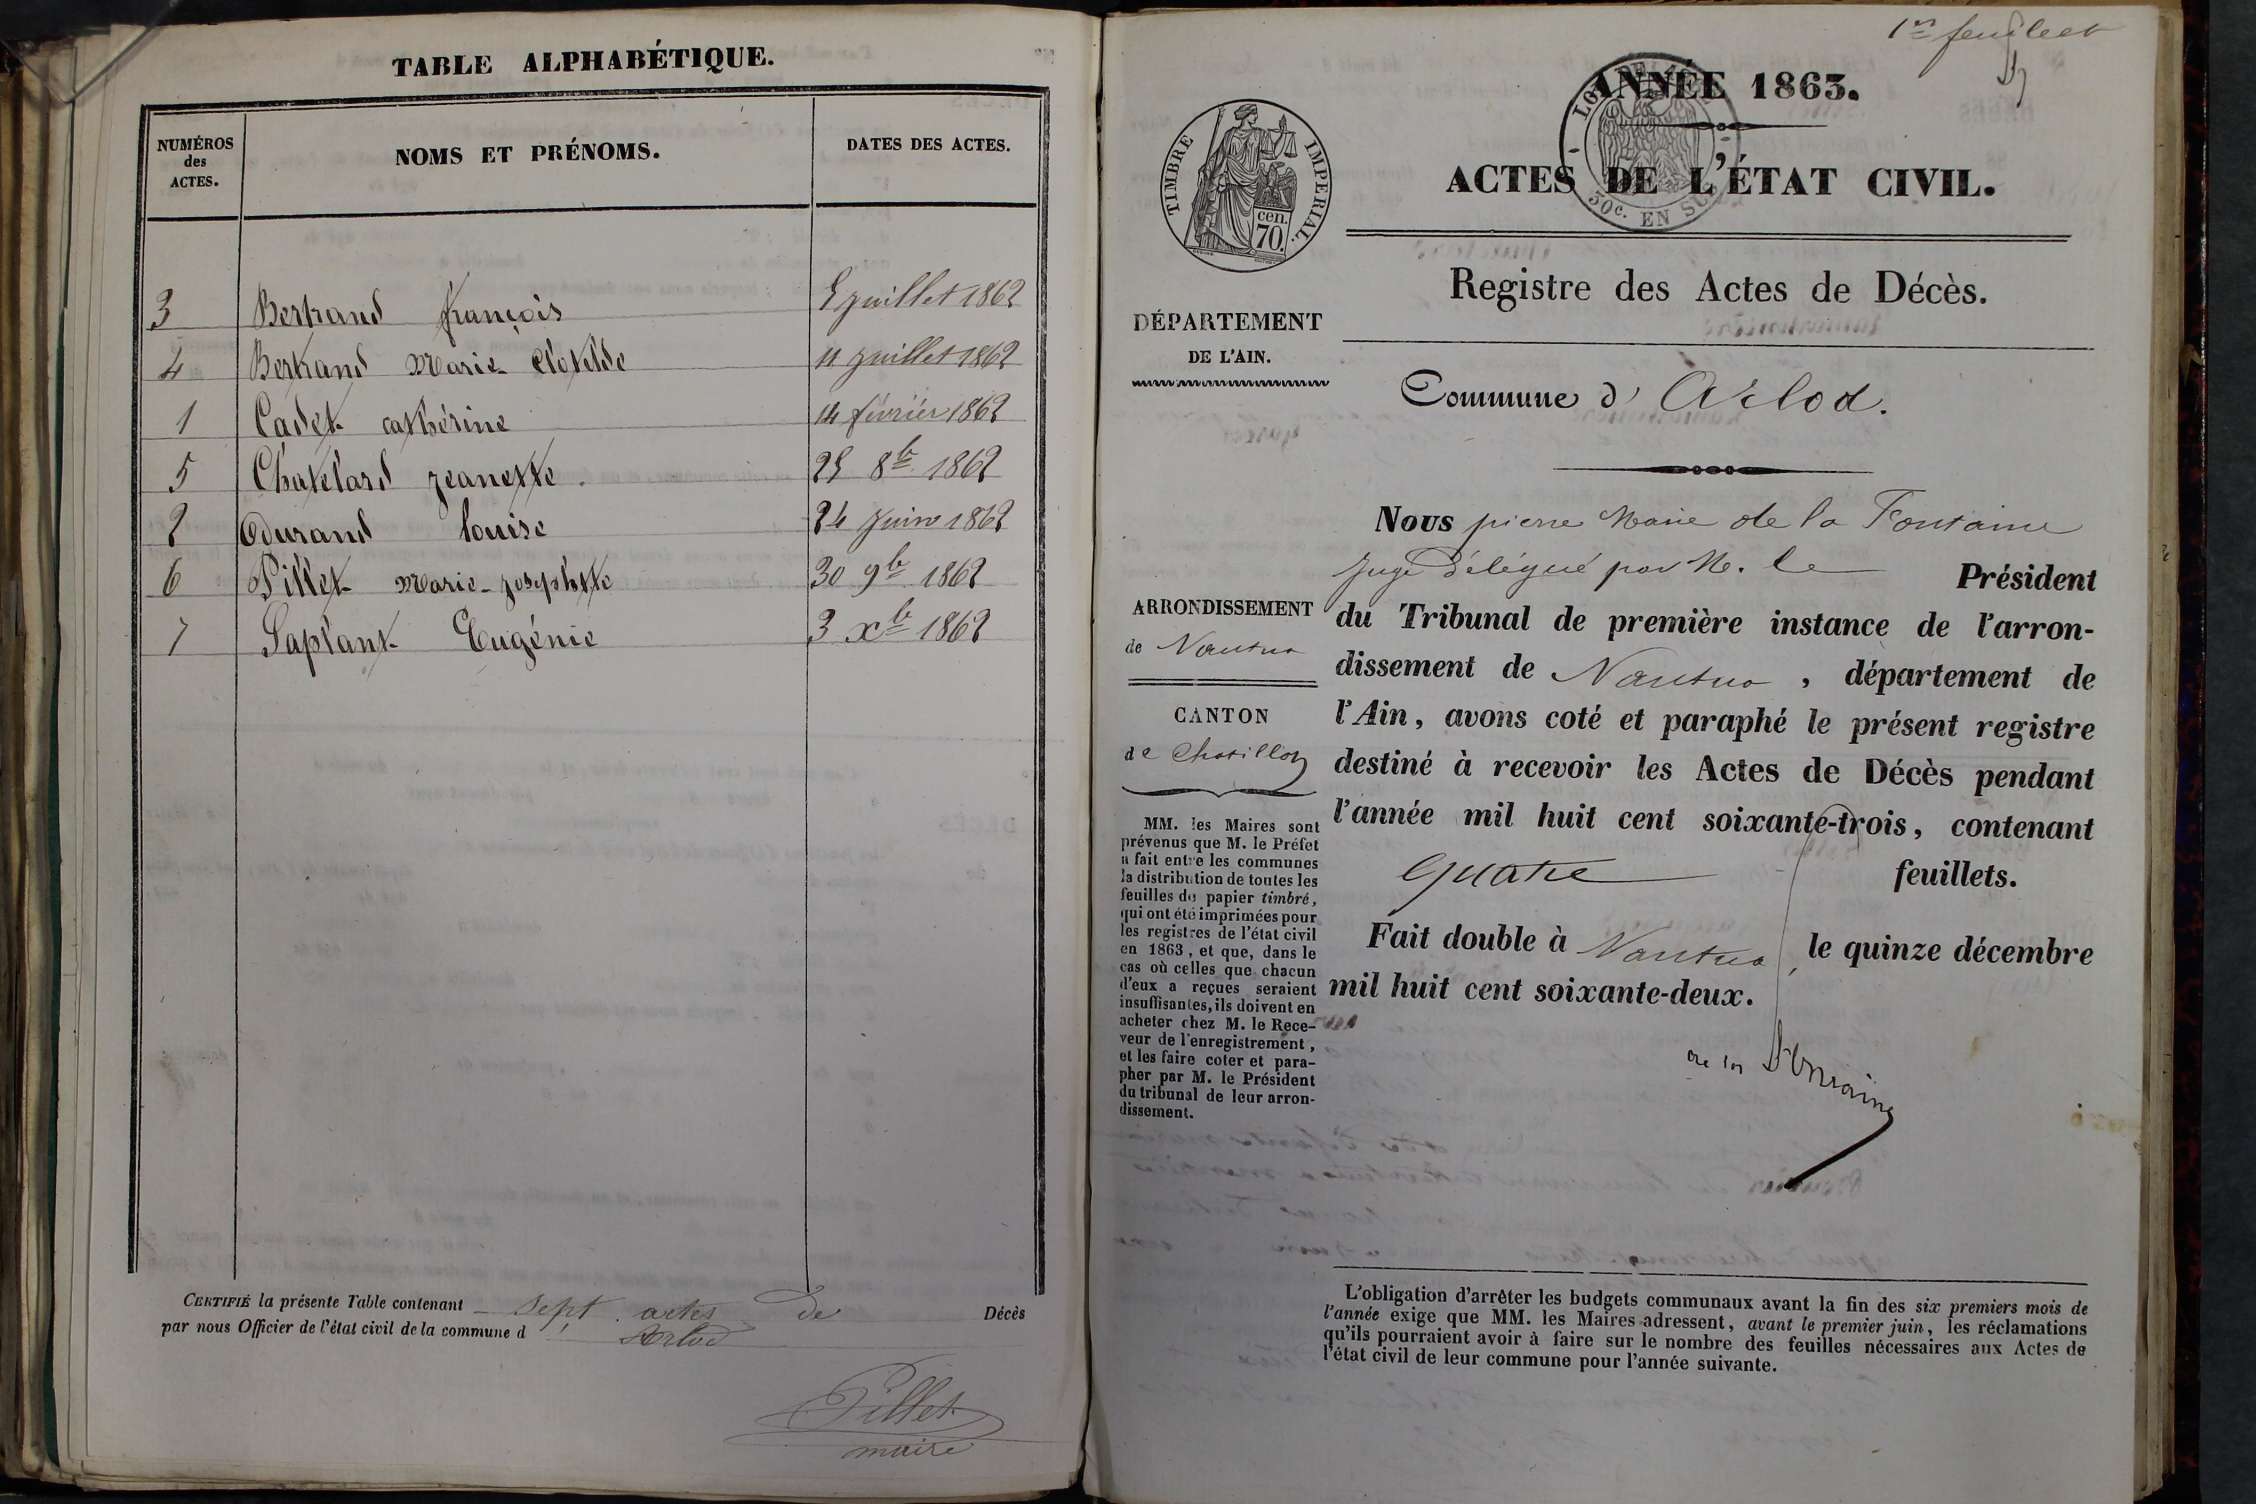 TABLE ALPHABÉTIQUE.
NUMÉROS
des
ACTES.
NOMS ET PRÉNOMS.
DATES DES ACTES.
3 Bertrand françois 5 juillet 1862
4 Bertrand Marie Clotilde 11 juillet 1862
1 Cadet cathérine 14 février 1862
5 Chatelard jeanette. 25 8bre 1862
2 Durand louise 24 juin 1862
6 Pillet Marie-josephtte 30 9bre 1862
7 Saplant Eugénie 3 xbre 1862
CERTIFIÉ la présente Table contenant sept actes de Décès
par nous Officier de l'état civil de la commune d' Arlod
Pillet
maire
1er feuillet
ANNÉE 1863.
TIMBRE IMPÉRIAL.
cen.
70.
50c. EN SUS
ACTES DE L'ÉTAT CIVIL.
Registre des Actes de Décès.
DÉPARTEMENT
DE L'AIN.
Commune d' Arlod.
ARRONDISSEMENT
de Nantua
CANTON
de Chatillon
MM. les Maires sont
prévenus que M. le Préfet
a fait entre les communes
la distribution de toutes les
feuilles du papier timbré,
qui ont été imprimées pour
les registres de l'état civil
en 1863, et que, dans le
cas où celles que chacun
d'eux a reçues seraient
insuffisantes, ils doivent en
acheter chez M. le Rece-
veur de l'enregistrement,
et les faire coter et para-
pher par M. le Président
du tribunal de leur arron-
dissement.
Nous pierre Marie de la Fontaine
juge délégué par M. le Président
du Tribunal de première instance de l'arron-
dissement de Nantua, département de
l'Ain, avons coté et paraphé le présent registre
destiné à recevoir les Actes de Décès pendant
l'année mil huit cent soixante-trois, contenant
quatre feuillets.
Fait double à Nantua, le quinze décembre
mil huit cent soixante-deux.
de la Fontaine
L'obligation d'arrêter les budgets communaux avant la fin des six premiers mois de
l'année exige que MM. les Maires adressent, avant le premier juin, les réclamations
qu'ils pourraient avoir à faire sur le nombre des feuilles nécessaires aux Actes de
l'état civil de leur commune pour l'année suivante.